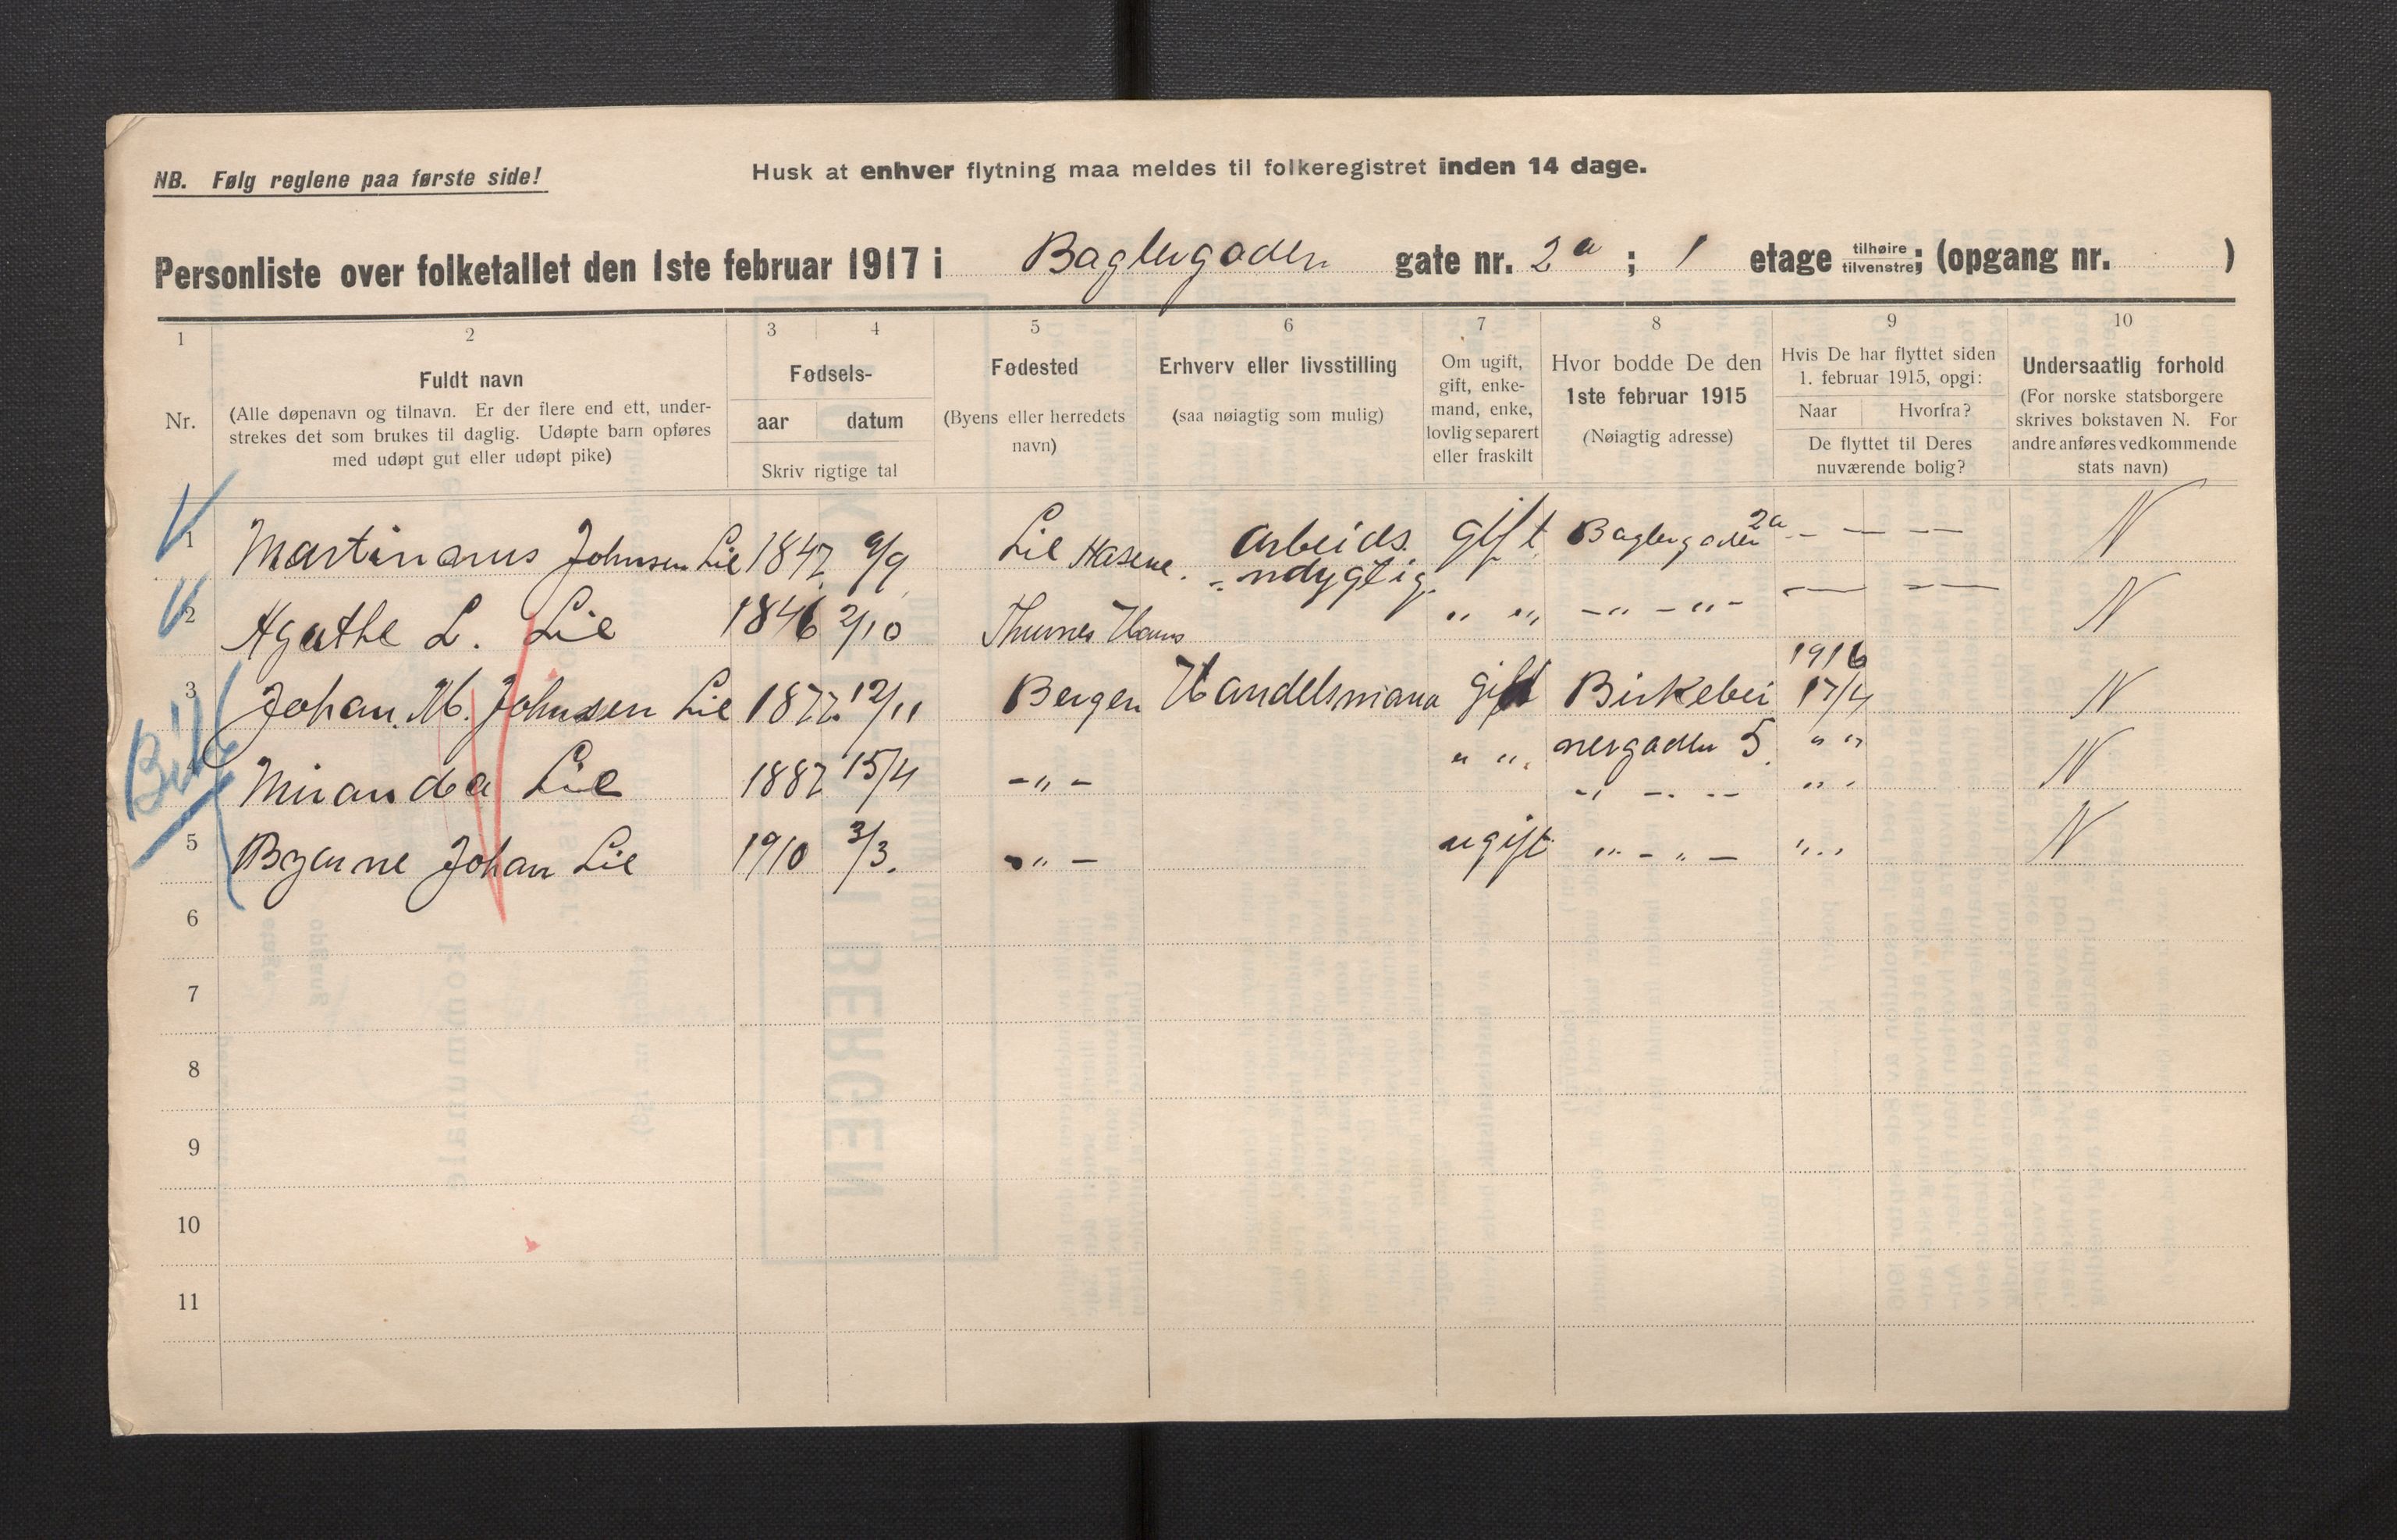 NB. Følg reglene paa første side!
Husk at enhver flytning maa meldes til folkeregistret inden 14 dage.
Personliste over folketallet den 1ste februar 1917 i Baglergaden gate nr. 2a ; 1 etage tilhøire tilvenstre; (opgang nr. )
1 2 3 4 5 6 7 8 9 10
Nr.
Fuldt navn
(Alle døpenavn og tilnavn. Er der flere end ett, under-
strekes det som brukes til daglig. Udøpte barn opføres
med udøpt gut eller udøpt pike)
Fødsels-
aar datum
Skriv rigtige tal
Fødested
(Byens eller herredets
navn)
Erhverv eller livsstilling
(saa nøiagtig som mulig)
Om ugift,
gift, enke-
mand, enke,
lovlig separert
eller fraskilt
Hvor bodde De den
1ste februar 1915
(Nøiagtig adresse)
Hvis De har flyttet siden
1. februar 1915, opgi:
Naar Hvorfra?
De flyttet til Deres
nuværende bolig?
Undersaatlig forhold
(For norske statsborgere
skrives bokstaven N. For
andre anføres vedkommende
stats navn)
1 Martinanus Johnsen Lie 1847 9/9 Lie Hasene. arbeids gift Baglergaden 2a — — — N
- udygtig.
2 Agathe L. Lie 1846 2/10 " " -"-"- — — — N
3 Johan. M. Johnsen Lie 1877. 12/11 Bergen Handelsmann gift Birkebei 1916 17/4 N
nergaden 5. " "
Miranda Lie 1887 15/4 -"- " " " - - " " N
5 Bjarne Johan Lie 1910 3/3. -"- ugift " - " - " " N
6
7
8
9
10
11